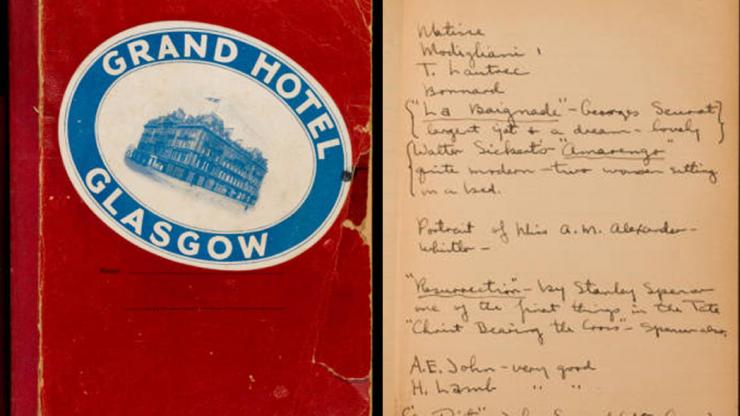 GRAND HOTEL
GLASGOW
Matisse
Modigliani
T. Lautrec
Bonnard
{"La Baignade" - Georges Seurat}
{largest yet & a dream - lovely}
{Walter Sickert's "Amarengo"
quite modern - two women sitting
on a bed.
Portrait of Miss A. M. Alexander -
Whistler -
"Resurrection" - by Stanley Spencer
one of the first things in the Tate
"Christ Bearing the Cross" - Spencer also.
A. E. John - very good
H. Lamb " "